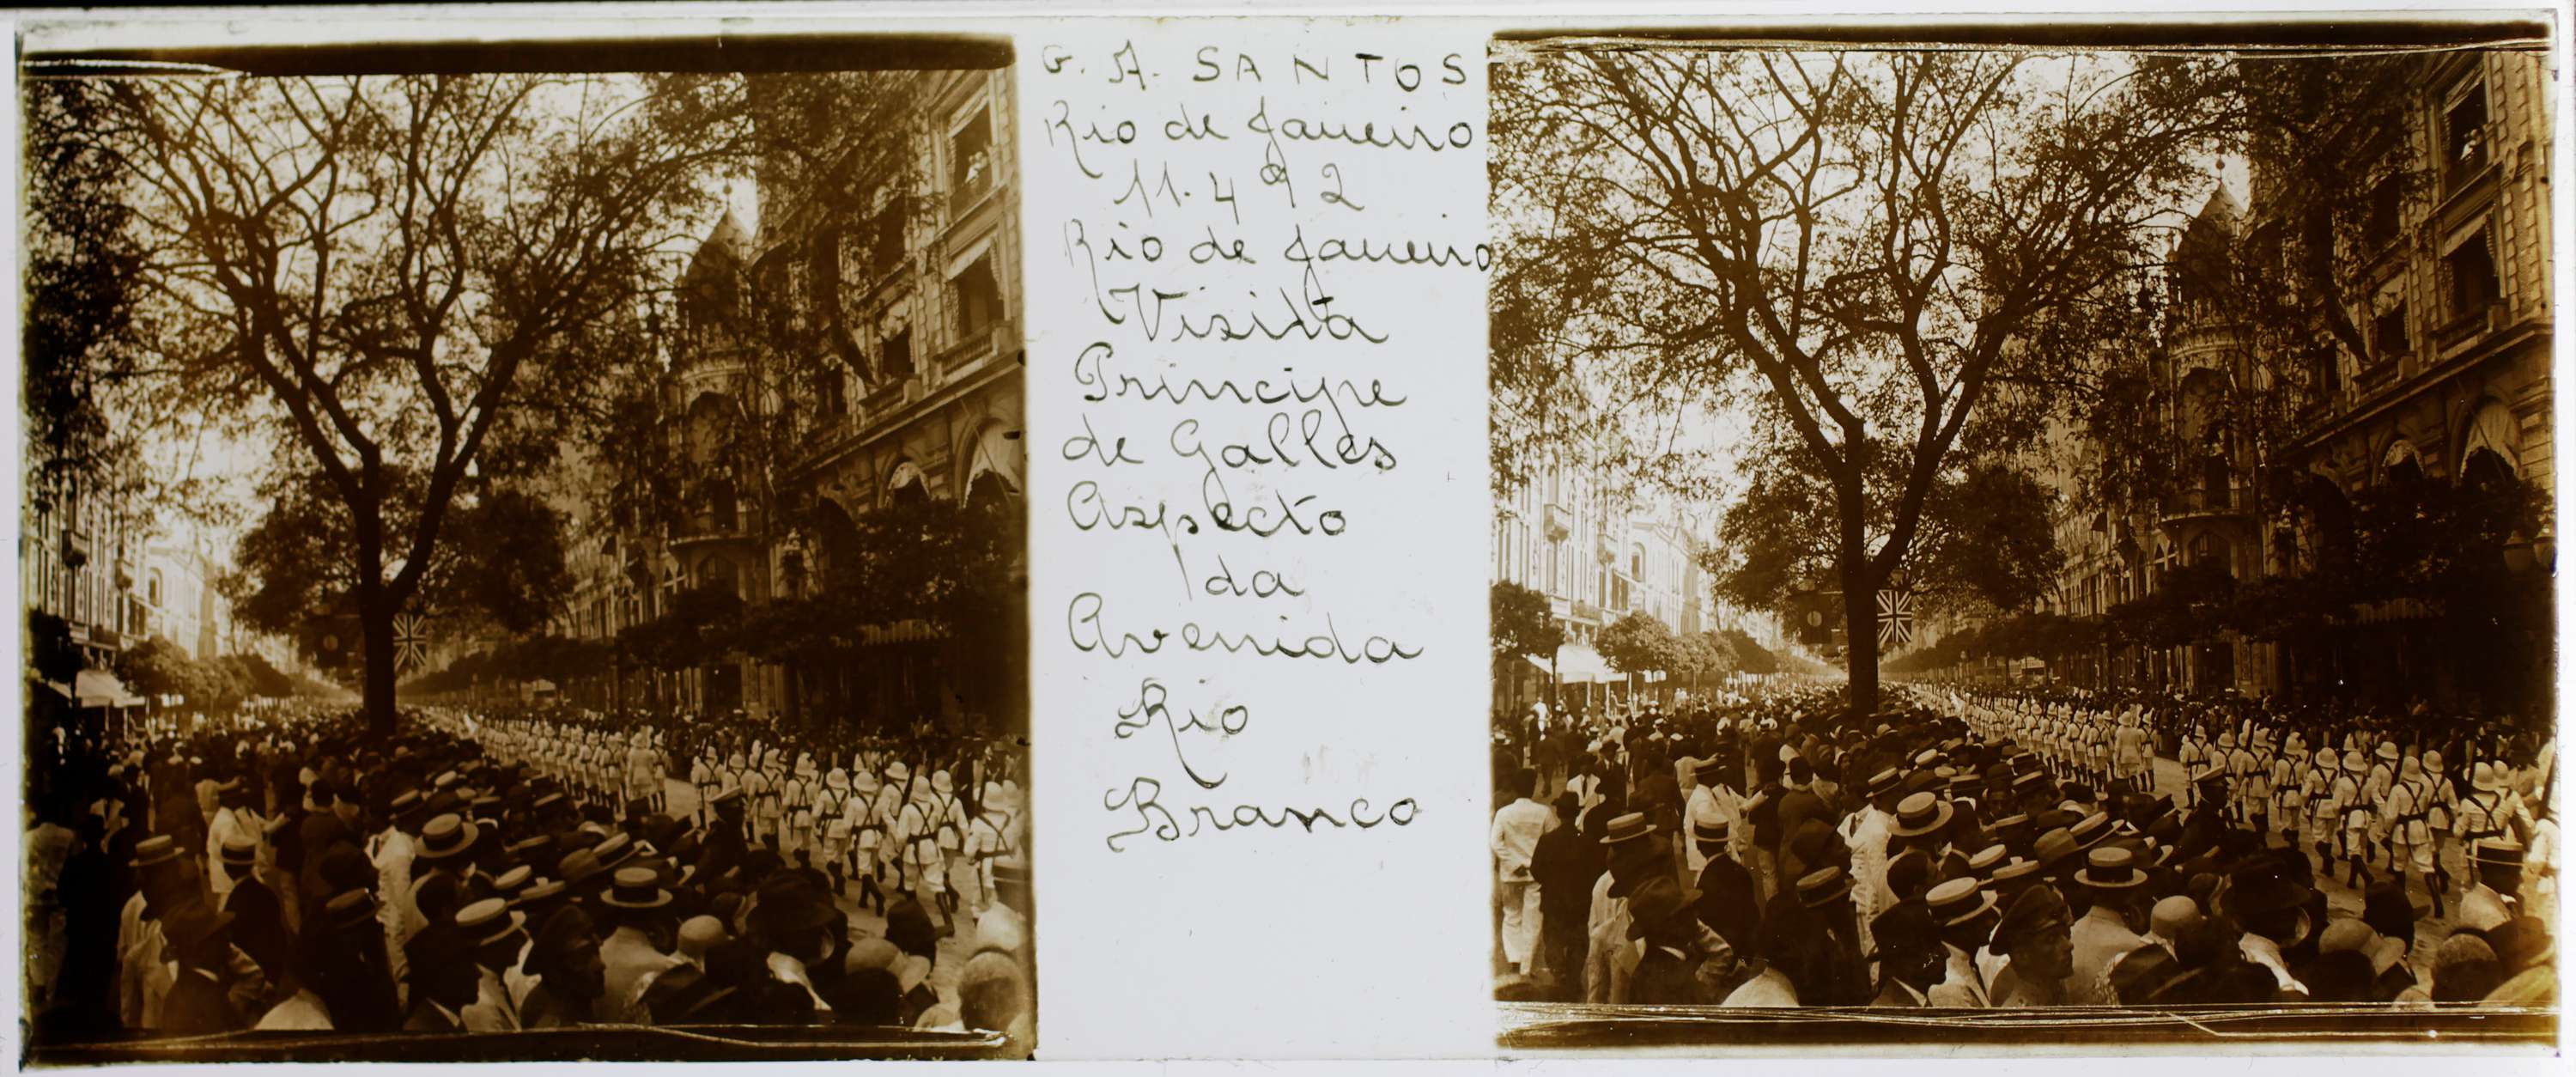 G. A. SANTOS
Rio de Janeiro
11.492
Rio de Janeiro
Visita
Principe
de Galles
Aspecto
da
Avenida
Rio
Branco